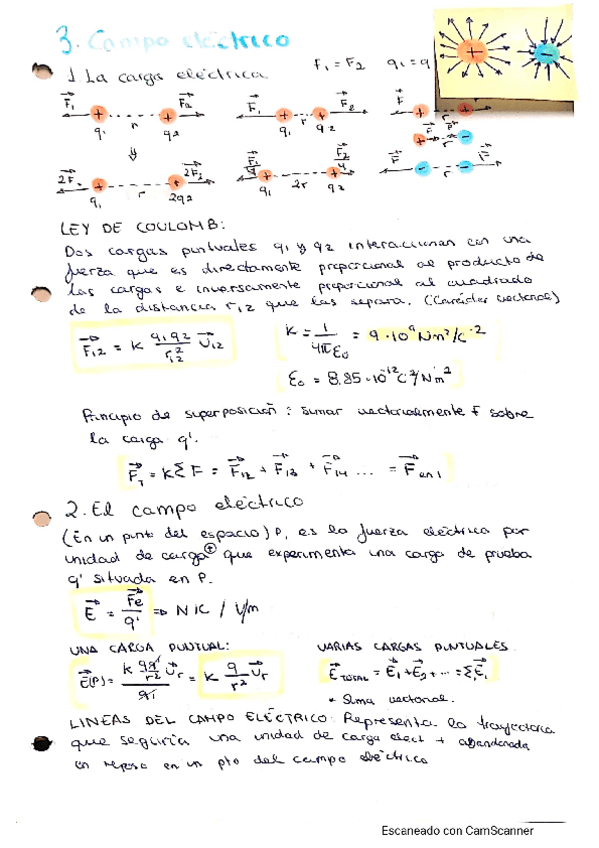 3. Campo eléctrico
1 La carga eléctrica F₁ = F₂ q₁ = q
+ −
F₁ F₂ F₁ F₂ F
+ r + + r + + r +
q₁ q₂ q₁ q₂ + r −
⇓
2F₁ 2F₂ F₁/4 F₂/4 F F
+ r + + 2r + − r −
q₁ 2q₂ q₁ q₂
LEY DE COULOMB:
Dos cargas puntuales q₁ y q₂ interaccionan con una
fuerza que es directamente proporcional al producto de
las cargas e inversamente proporcional al cuadrado
de la distancia r₁₂ que las separa. (Carácter vectorial)
F₁₂ = K q₁q₂/r₁₂² U₁₂ K = 1/4πε₀ = 9·10⁹ Nm²/C⁻²
ε₀ = 8.85·10⁻¹² C²/Nm²
Principio de superposición: Sumar vectorialmente F sobre
la carga q'.
F_T = KΣF = F₁₂ + F₁₃ + F₁₄ ... = F en 1
2. El campo eléctrico
(En un punto del espacio) P, es la fuerza eléctrica por
unidad de carga ⊕ que experimenta una carga de prueba
q' situada en P.
E = Fe/q' ⇒ N/C / V/m
UNA CARGA PUNTUAL: VARIAS CARGAS PUNTUALES.
E(P) = (K qq'/r² Ur)/q' = K q/r² Ur E TOTAL = E₁ + E₂ + ... = ΣEᵢ
* Suma vectorial.
LINEAS DEL CAMPO ELÉCTRICO: Representa la trayectoria
que seguiría una unidad de carga elect + abandonada
en reposo en un pto del campo eléctrico
Escaneado con CamScanner